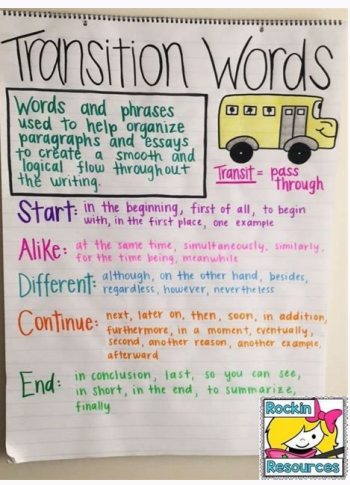 Transition Words
Words and phrases
used to help organize
paragraphs and essays
to create a smooth and
logical flow throughout
the writing.
Transit = pass
through
Start: in the beginning, first of all, to begin
with, in the first place, one example
Alike: at the same time, simultaneously, similarly,
for the time being, meanwhile
Different: although, on the other hand, besides,
regardless, however, nevertheless
Continue: next, later on, then, soon, in addition,
furthermore, in a moment, eventually,
second, another reason, another example,
afterward
End: in conclusion, last, so you can see,
in short, in the end, to summarize,
finally
Rockin
Resources